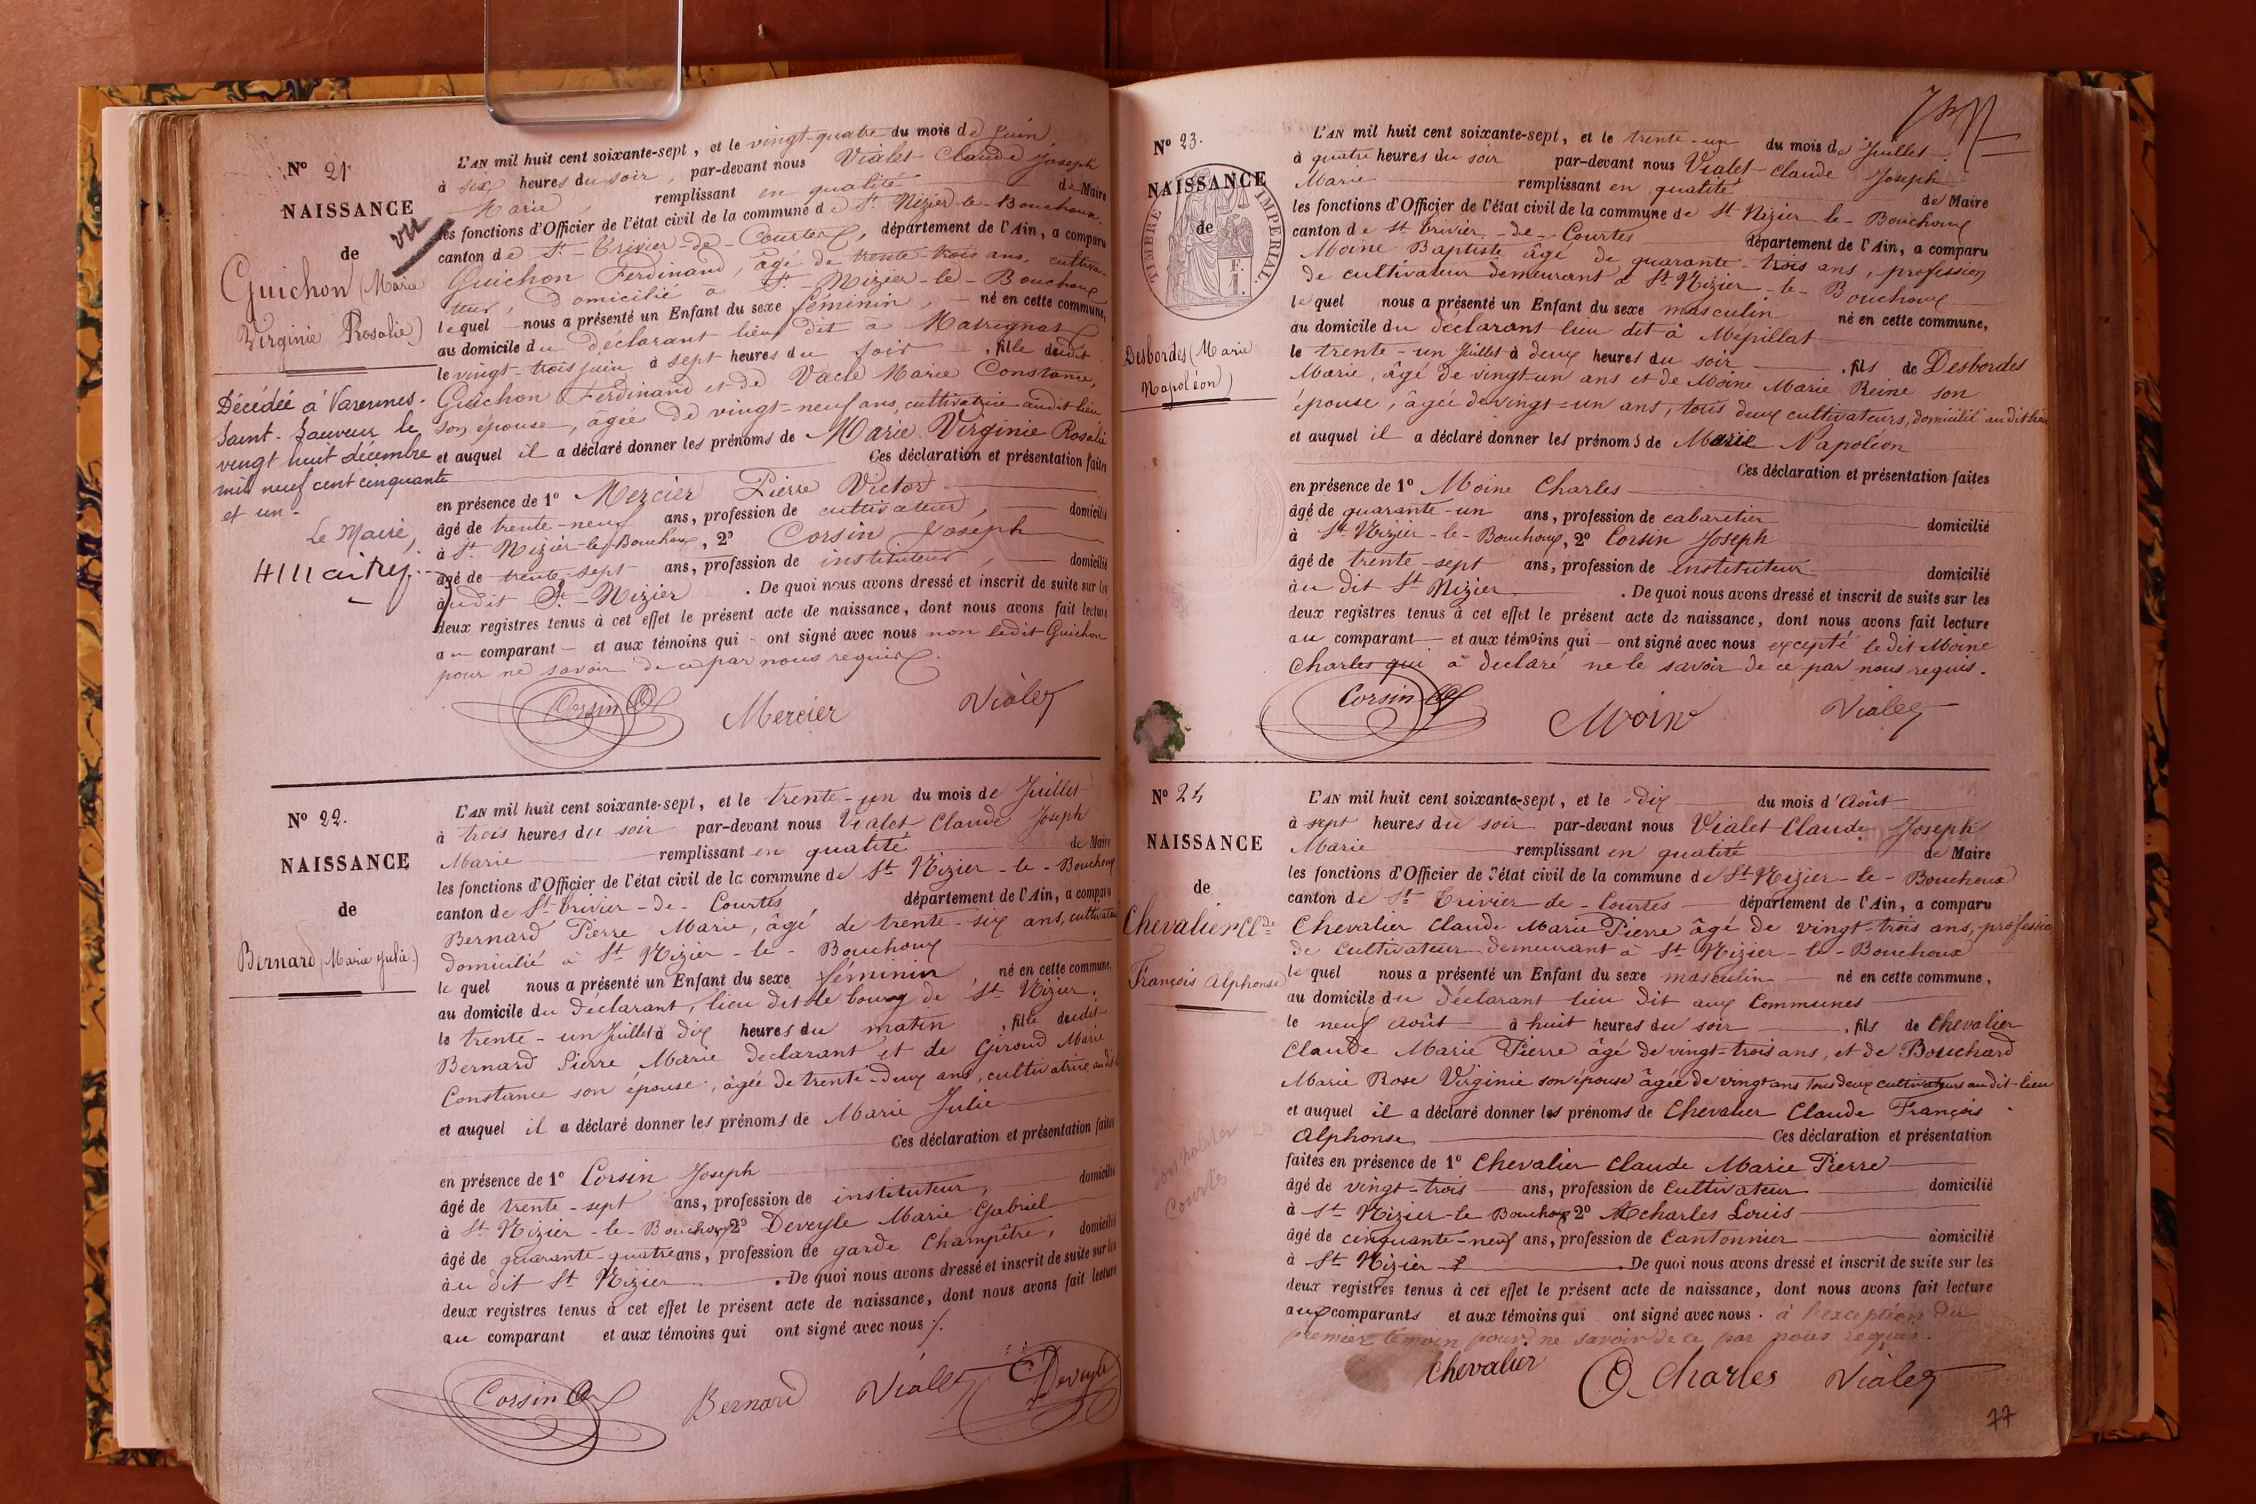 Nº 21
NAISSANCE
de
vu
Guichon (Marie
Virginie Rosalie)
Décédée à Varennes-
Saint-Sauveur le
vingt huit décembre
mil neuf cent cinquante
et un.-
Le Maire,
L'AN mil huit cent soixante-sept, et le vingt-quatre du mois de Juin,
à six heures du soir, par-devant nous Vialet Claude Joseph
Marie, remplissant en qualité de Maire
les fonctions d'Officier de l'état civil de la commune de St Nizier-le-Bouchoux
canton de St-Trivier-de-Courtes, département de l'Ain, a comparu
Guichon Ferdinand, âgé de trente trois ans, cultiva-
teur, domicilié à St-Nizier-le-Bouchoux
lequel nous a présenté un Enfant du sexe féminin, né en cette commune,
au domicile du déclarant lieu dit à
le vingt-trois juin à sept heures du soir, fille dudit
Guichon Ferdinand et de Vacle Marie Constance,
son épouse, âgée de vingt-neuf ans, cultivatrice audit lieu
et auquel il a déclaré donner les prénoms de Marie Virginie Rosalie
Ces déclaration et présentation faites
en présence de 1º Mercier Pierre Victor
âgé de trente-neuf ans, profession de cultivateur, domicilié
à St Nizier-le-Bouchoux, 2º Corsin Joseph
âgé de trente-sept ans, profession de instituteur, domicilié
audit St-Nizier. De quoi nous avons dressé et inscrit de suite sur les
deux registres tenus à cet effet le présent acte de naissance, dont nous avons fait lecture
au comparant et aux témoins qui ont signé avec nous non ledit Guichon
pour ne savoir de ce par nous requis.
Corsin Mercier Vialet
Nº 22.
NAISSANCE
de
Bernard (Marie Julie)
L'AN mil huit cent soixante-sept, et le trente-un du mois de Juillet
à trois heures du soir par-devant nous Vialet Claude Joseph
Marie remplissant en qualité de Maire
les fonctions d'Officier de l'état civil de la commune de St-Nizier-le-Bouchoux
canton de St-Trivier-de-Courtes département de l'Ain, a comparu
Bernard Pierre Marie, âgé de trente-six ans, cultivateur
domicilié à St Nizier-le-Bouchoux
lequel nous a présenté un Enfant du sexe féminin, né en cette commune,
au domicile du déclarant, lieu dit le bourg de St-Nizier,
le trente-un Juillet à dix heures du matin, fille dudit
Bernard Pierre Marie déclarant et de Giroud Marie
Constance son épouse, âgée de trente-deux ans, cultivatrice au dit
et auquel il a déclaré donner les prénoms de Marie Julie
Ces déclaration et présentation faites
en présence de 1º Corsin Joseph
âgé de trente-sept ans, profession de instituteur, domicilié
à St-Nizier-le-Bouchoux, 2º Deveyle Marie Gabriel
âgé de quarante-quatre ans, profession de garde Champêtre, domicilié
au dit St Nizier. De quoi nous avons dressé et inscrit de suite sur les
deux registres tenus à cet effet le présent acte de naissance, dont nous avons fait lecture
au comparant et aux témoins qui ont signé avec nous ./.
Corsin Bernard Vialet Deveyle
Nº 23.
NAISSANCE
de
TIMBRE IMPERIAL
Desbordes (Marie
Napoléon)
L'AN mil huit cent soixante-sept, et le trente-un du mois de Juillet
à quatre heures du soir par-devant nous Vialet Claude Joseph
Marie remplissant en qualité de Maire
les fonctions d'Officier de l'état civil de la commune de St Nizier-le-Bouchoux
canton de St Trivier-de-Courtes département de l'Ain, a comparu
Moine Baptiste âgé de quarante-trois ans, profession
de cultivateur demeurant à St-Nizier-le-Bouchoux
lequel nous a présenté un Enfant du sexe masculin né en cette commune,
au domicile du déclarant lieu dit à Mépillat
le trente-un Juillet à deux heures du soir, fils de Desbordes
Marie, âgé de vingt-un ans et de Moine Marie Reine son
épouse, âgée de vingt-un ans, tous deux cultivateurs, domicilié au dit lieu
et auquel il a déclaré donner les prénoms de Marie Napoléon
Ces déclaration et présentation faites
en présence de 1º Moine Charles
âgé de quarante-un ans, profession de cabaretier domicilié
à St-Nizier-le-Bouchoux, 2º Corsin Joseph
âgé de trente-sept ans, profession de instituteur domicilié
au dit St Nizier. De quoi nous avons dressé et inscrit de suite sur les
deux registres tenus à cet effet le présent acte de naissance, dont nous avons fait lecture
au comparant et aux témoins qui ont signé avec nous excepté le dit Moine
Charles qui a déclaré ne le savoir de ce par nous requis.
Corsin Moine Vialet
Nº 24
NAISSANCE
de
Chevalier Cl de
François Alphonse
L'AN mil huit cent soixante-sept, et le dix du mois d'Août
à sept heures du soir par-devant nous Vialet Claude Joseph
Marie remplissant en qualité de Maire
les fonctions d'Officier de l'état civil de la commune de St-Nizier-le-Bouchoux
canton de St Trivier-de-Courtes département de l'Ain, a comparu
Chevalier Claude Marie Pierre âgé de vingt-trois ans, profession
de Cultivateur demeurant à St-Nizier-le-Bouchoux
lequel nous a présenté un Enfant du sexe masculin né en cette commune,
au domicile du déclarant lieu dit aux Communes
le neuf Août à huit heures du soir, fils de Chevalier
Claude Marie Pierre âgé de vingt-trois ans, et de Bouchard
Marie Rose Virginie son épouse âgée de vingt ans tous deux cultivateurs au dit-lieu
et auquel il a déclaré donner les prénoms de Chevalier Claude François
Alphonse Ces déclaration et présentation
faites en présence de 1º Chevalier Claude Marie Pierre
âgé de vingt-trois ans, profession de Cultivateur domicilié
à St-Nizier-le Bouchoux 2º Charles Louis
âgé de cinquante-neuf ans, profession de Cantonnier domicilié
à St-Nizier. De quoi nous avons dressé et inscrit de suite sur les
deux registres tenus à cet effet le présent acte de naissance, dont nous avons fait lecture
aux comparants et aux témoins qui ont signé avec nous. à l'exception du
premier témoin pour ne savoir de ce par nous requis.
Chevalier Charles Vialet
77